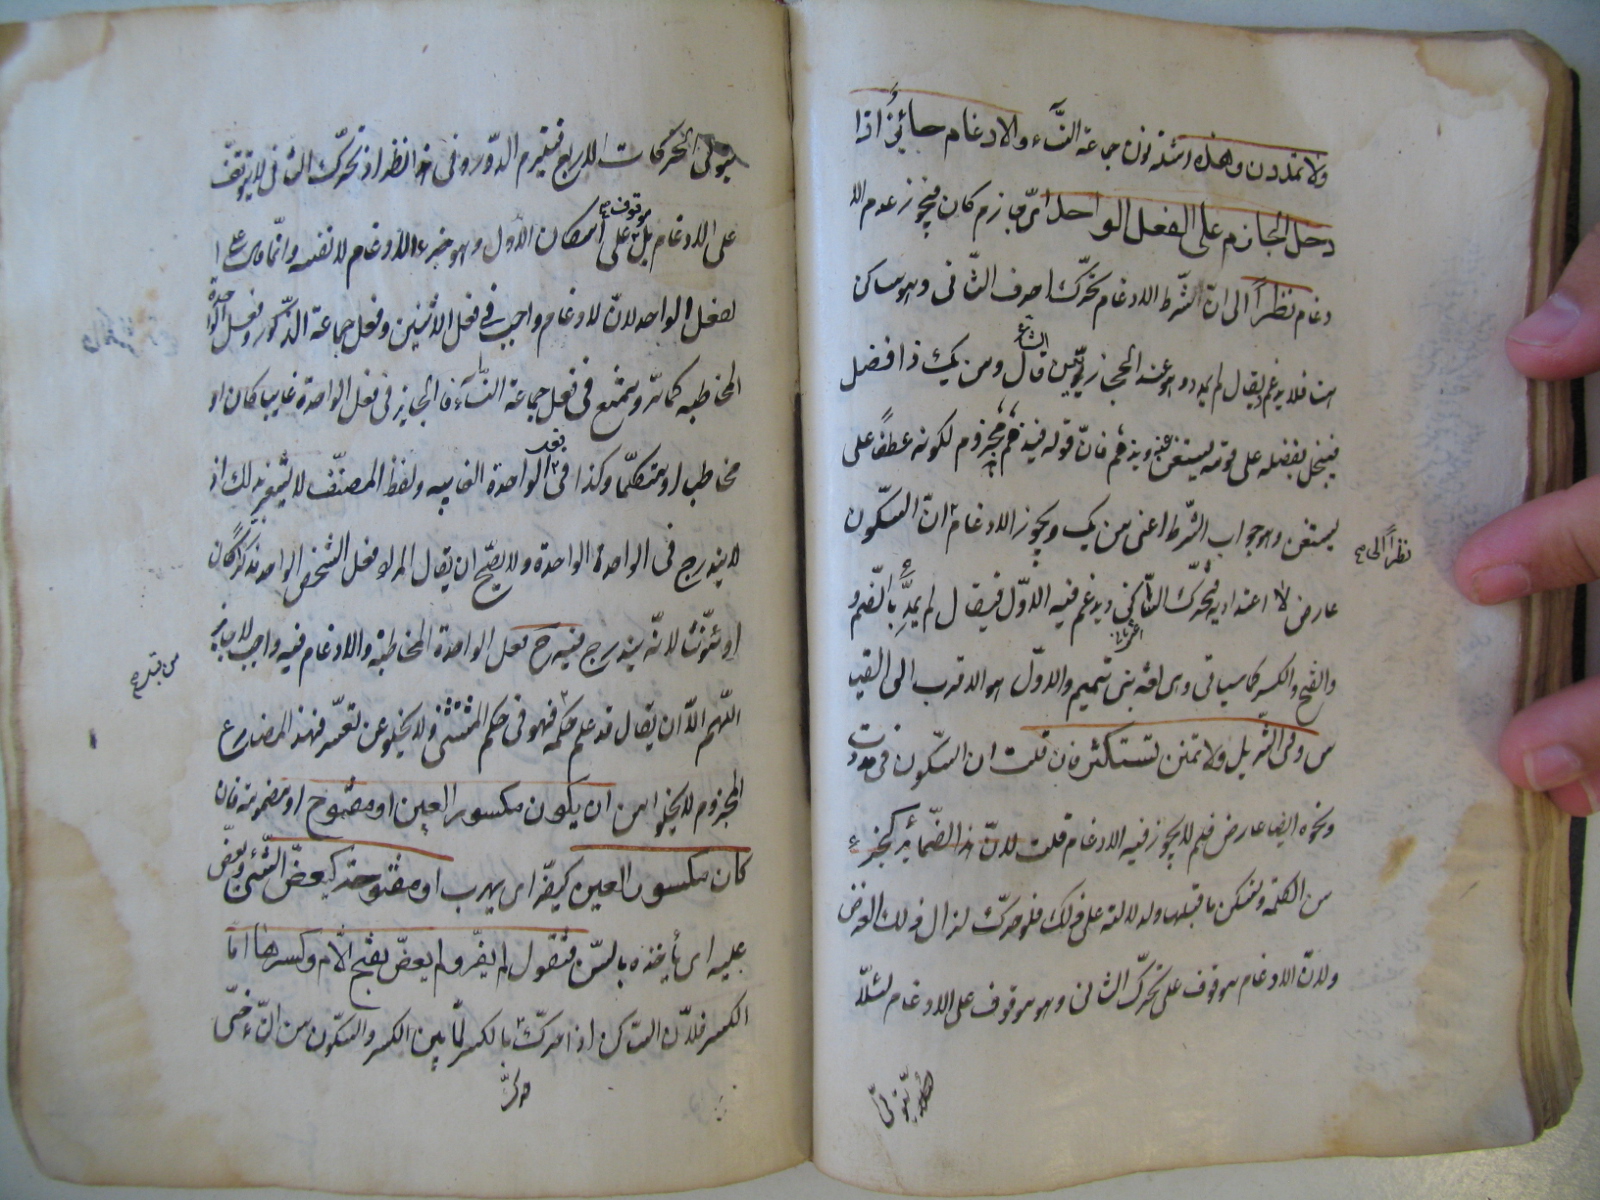 ولا تمددن وهذه اشد نون جماعة النساء والادغام جائز اذا
دخل الجازم على الفعل الواحد اى جازم كان فيجوز عدم الا
دغام نظرا الى ان الشرط الادغام تحرك الحرف الثانى وهو ساكن
هنا فلا يدغم ويقال لم يمدد وهو عند الحجازيين قال الشاعر ومن يك ذا فضل
فيبخل بفضله على قومه يستغن عنه ويذمم فان قوله فيذمم مجزوم لكونه عطفا على
يستغن وهو جواب الشرط اعنى من يك ويجوز الادغام نظرا الى ان السكون
عارض لا اعتداد به فيحرك الثانى ويدغم فيه الاول فيقال لم يمد بالضم و
والفتح والكسر كما سياتى وهى لغة بنى تميم والاول هو الاقرب الى القيا
س وفى التنزيل ولا تمنن تستكثر فان قلت ان السكون فى مددت
ونحوه ايضا عارض فلم لا يجوز فيه الادغام قلت لان هذه الضمائر كجزء
من الكلمة وتسكن ما قبلها دلالة على ذلك فلو حرك لزال ذلك الغرض
ولان الادغام موقوف على تحرك الثانى وهو موقوف على الادغام لئلا
يتوالى
يتوالى الحركات الاربع فيلزم الدور وفى هذا نظر اذ تحرك الثانى لا يتوقف
على الادغام بل موقوف على اسكان الاول وهو جزء الادغام لا نفسه وانما قال
لفعل الواحد لان الادغام واجب فى فعل الاثنين وفعل جماعة الذكور وفعل الواحدة
المخاطبة كما مر وممتنع فى فعل جماعة النساء فالجايز فى فعل الواحدة غايبا كان او
مخاطبا او متكلما وكذا فى الواحدة الغايبة ولفظ المصنف لا يشعر بذلك اذ
لا يندرج فى الواحد الواحدة ولا يصح ان يقال المراد فعل الشخص الواحد مذكرا كان
او مؤنثا لانه يندرج فيه ح فعل الواحدة المخاطبة والادغام فيه واجب لا جايز
اللهم الا ان يقال قد علم حكمه فهو فى حكم المستثنى ولا يخلو عن تعسر فهذا المضارع
المجزوم لا يخلو من ان يكون مكسور العين او مفتوحه او مضمومه فان
كان مكسور العين كيفر اى يهرب او مفتوحه كيعض الشئ ويعض
عليه اى يأخذه بالسن فتقول لم يفر ولم يعض بفتح اللام وكسرها اما
الكسر فلان الساكن اذا حرك حرك بالكسر لما بين الكسر والسكون من التأخى